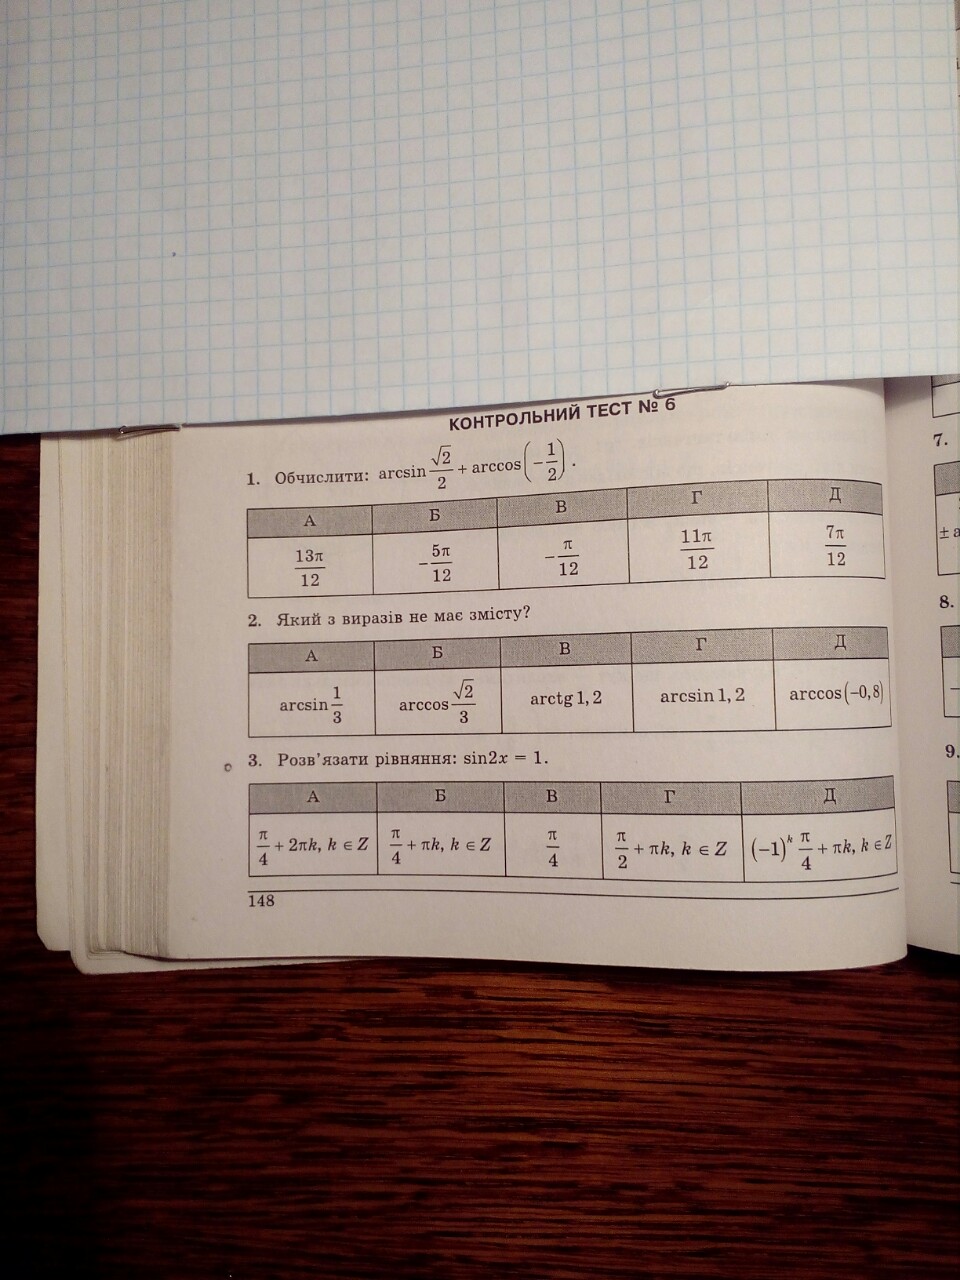 КОНТРОЛЬНИЙ ТЕСТ № 6
1. Обчислити: arcsin √2/2 + arccos(−1/2).
А Б В Г Д
13π/12 −5π/12 −π/12 11π/12 7π/12
2. Який з виразів не має змісту?
А Б В Г Д
arcsin 1/3 arccos √2/3 arctg 1,2 arcsin 1,2 arccos(−0,8)
3. Розв'язати рівняння: sin2x = 1.
А Б В Г Д
π/4 + 2πk, k ∈ Z π/4 + πk, k ∈ Z π/4 π/2 + πk, k ∈ Z (−1)^k π/4 + πk, k ∈ Z
148
7.
± a
8.
9.